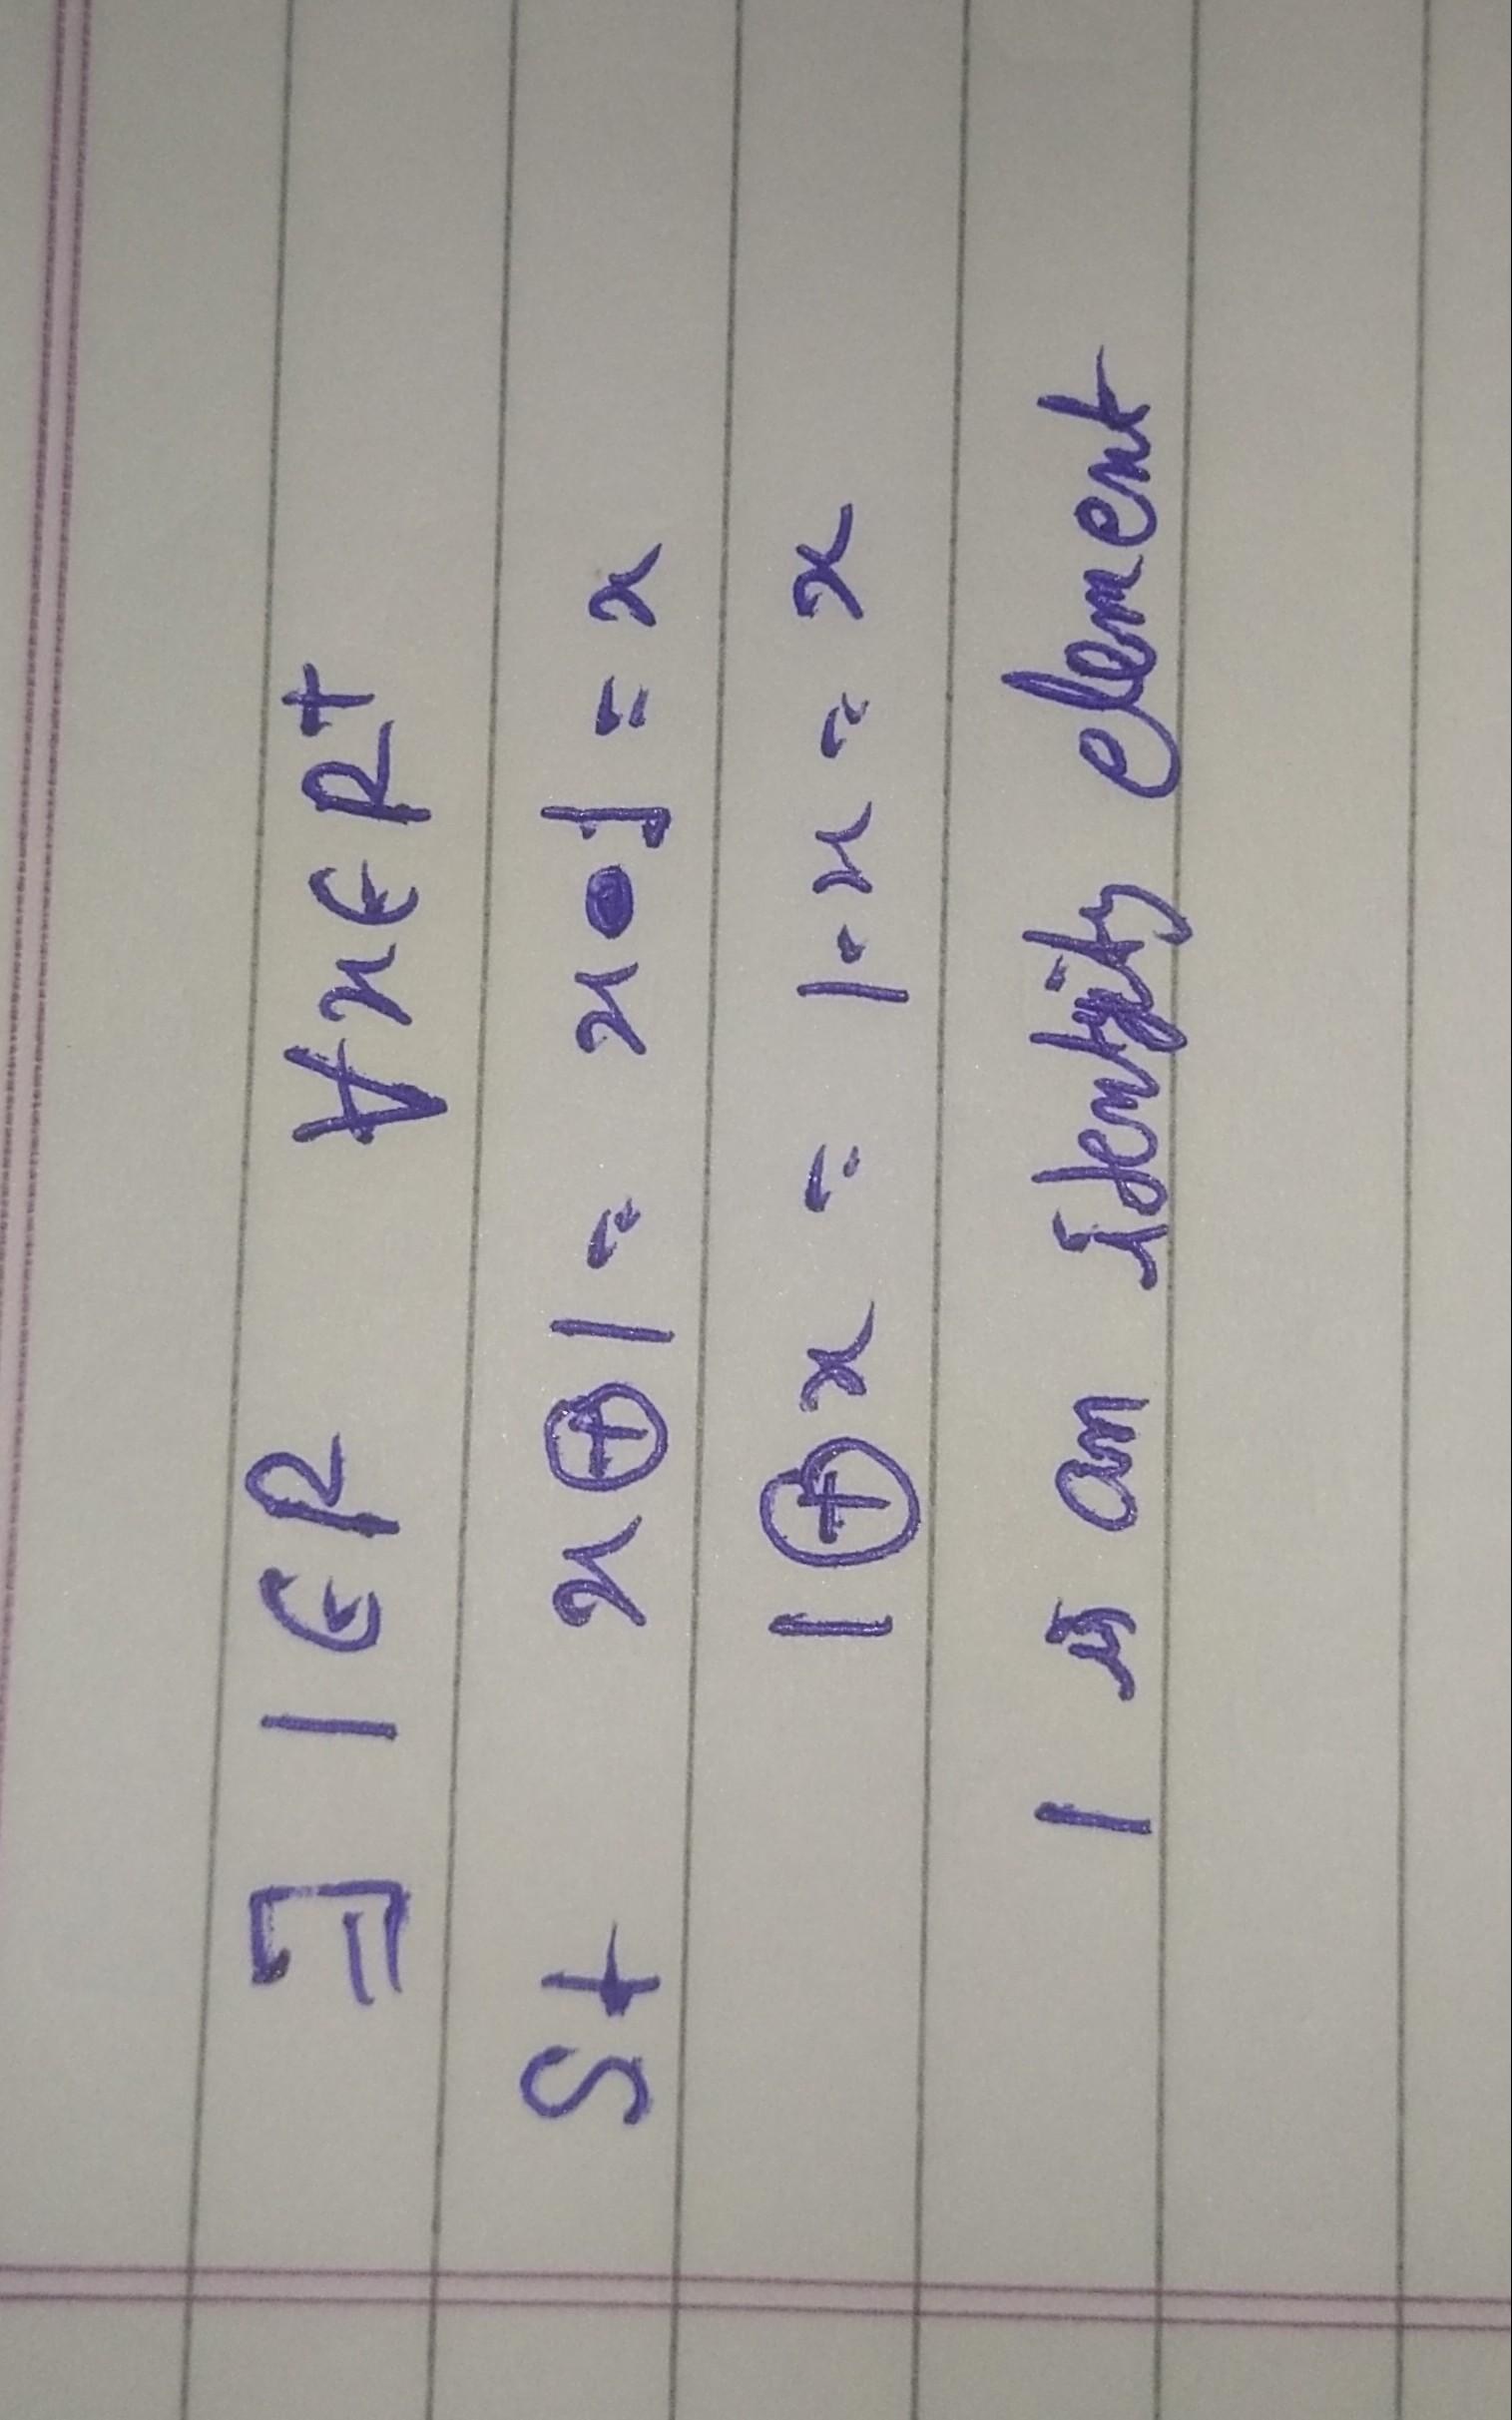 ∃ 1 ∈ R ∀ x ∈ R⁺
St x ⊕ 1 = x • 1 = x
1 ⊕ x = 1 . x = x
1 is an identity element